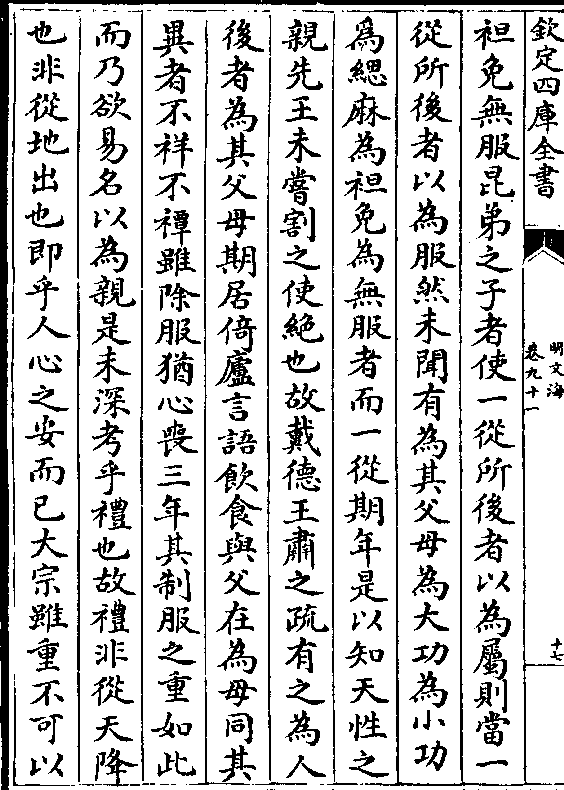 欽定四庫全書
明文海
卷九十一
十七
袒免無服昆弟之子者使一從所後者以為屬則當一
從所後者以為服然未聞有為其父母為大功為小功
為緦麻為袒免為無服者而一從期年是以知天性之
親先王未嘗割之使絶也故戴德王肅之疏有之為人
後者為其父母期居倚廬言語飲食與父在為母同其
異者不祥不禫雖除服猶心喪三年其制服之重如此
而乃欲易名以為親是未深考乎禮也故禮非從天降
也非從地出也即乎人心之安而已大宗雖重不可以